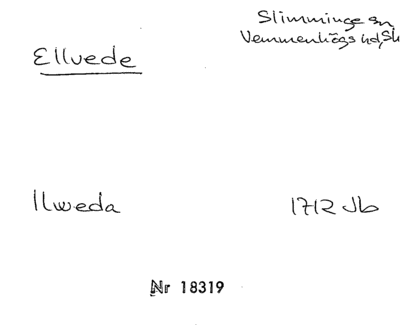 Slimminge sn
Vemmenhögs hd, Sk
Ellvede
Ilweda
1712 Jb
Nr 18319